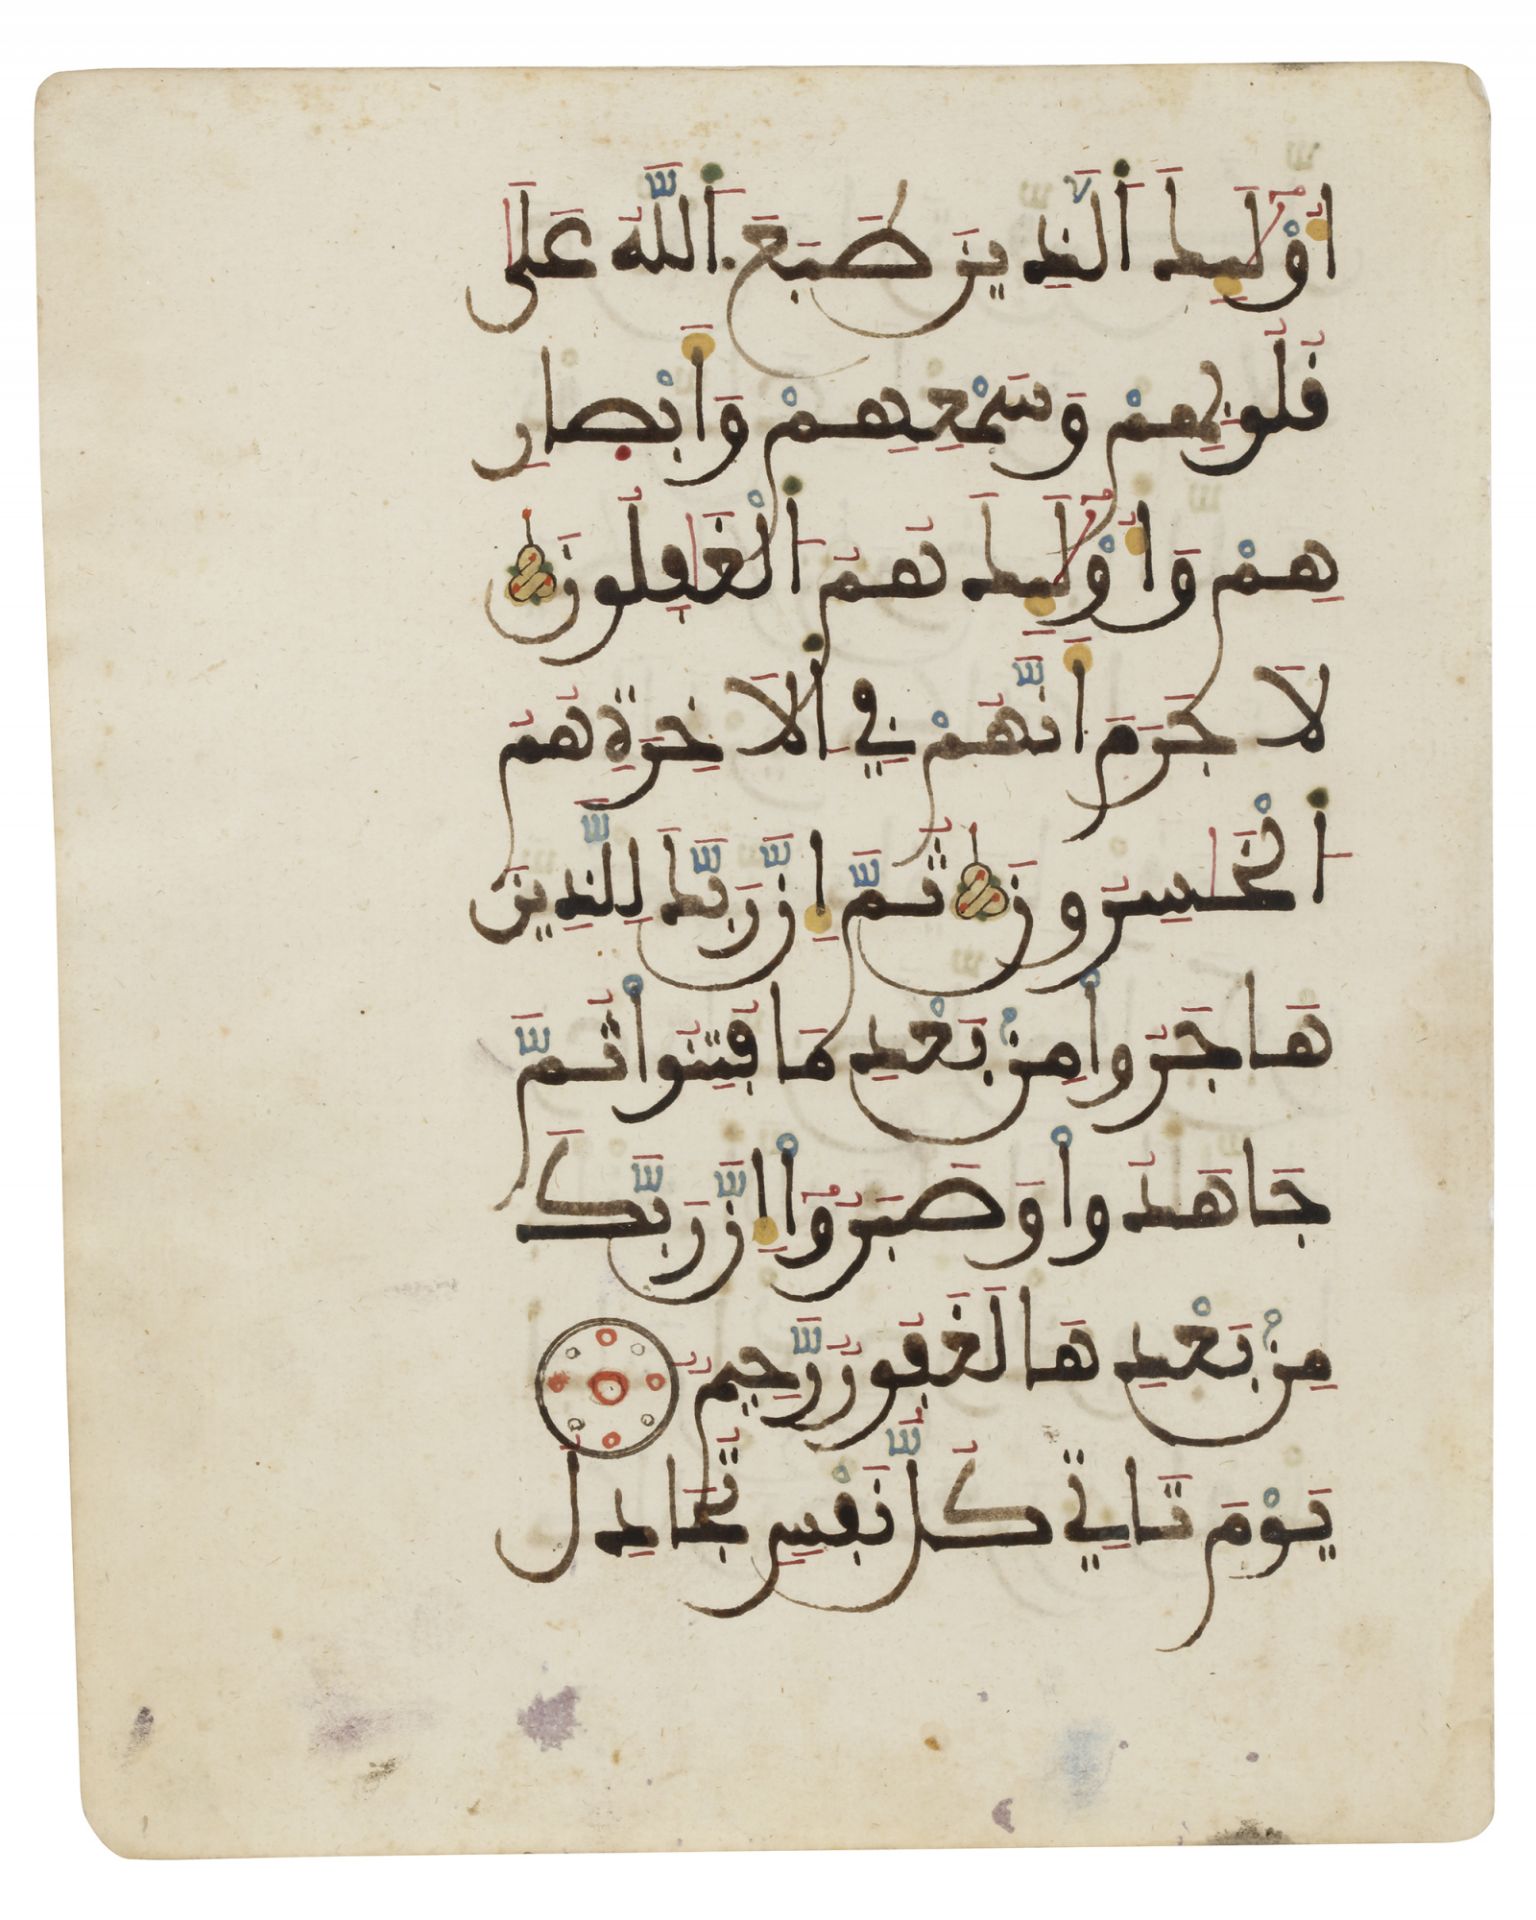 أُوْلَٰٓئِكَ اَ۬لذِينَ طَبَعَ اَ۬للَّهُ عَلَىٰ
قُلُوبِهِمْ وَسَمْعِهِمْ وَأَبْصٰارِ
هِمْ وَأُوْلَٰٓئِكَ هُمُ اُ۬لْغَٰفِلُونَ
لَا جَرَمَ أَنَّهُمْ فِي اِ۬لَاخِرَةِ هُمُ
اُ۬لْخَٰسِرُونَ ثُمَّ إِنَّ رَبَّكَ لِلَّذِينَ
هَاجَرُواْ مِنۢ بَعْدِ مَا فُتِنُواْ ثُمَّ
جَاهَدُواْ وَصَبَرُوٓاْ إِنَّ رَبَّكَ
مِنۢ بَعْدِهَا لَغَفُورٌ رَّحِيمٌ
يَوْمَ تَاتِي كُلُّ نَفْسٍ تُجَادِلُ